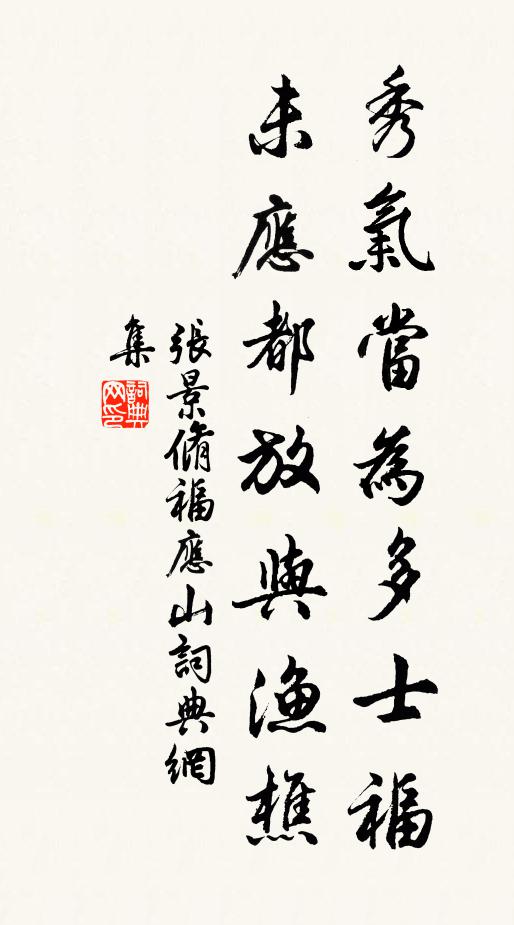 秀氣當為多士福
未應都放與漁樵
張景脩福應山詞典網
集
詞典网印